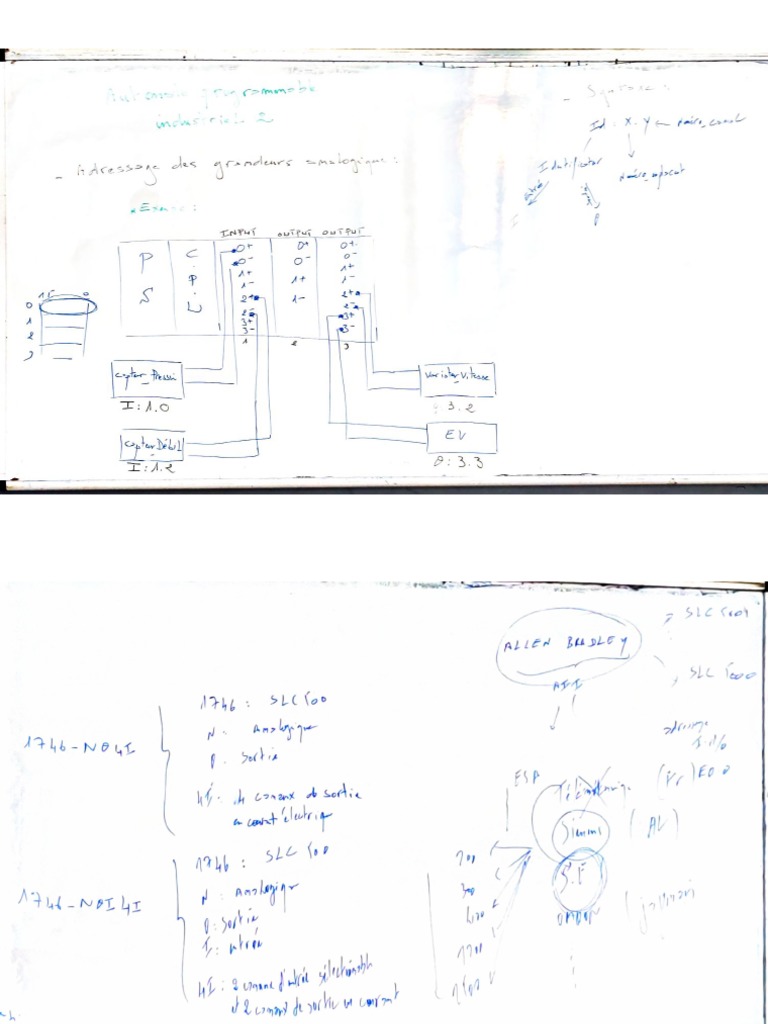 Automate programmable
industriel 2
- Adressage des grandeurs analogique :
* Exemple :
INPUT OUTPUT OUTPUT
P
S
C
P
U
0+
0-
1+
1-
2+
2-
3+
3-
1
0+
0-
1+
1-
2
0+
0-
1+
1-
2+
2-
3+
3-
3
15 0
0
1
2
capteur_Pression
I:1.0
capteur Débit
I:1.2
variateur_Vitesse
O:3.2
EV
O:3.3
- Syntaxe :
Id : X.Y ← Numéro_canal
Identificateur
entrée
I
O
ALLEN BRADLEY
API
SLC 500
SLC 5000
1746-NO4I
1746 : SLC 500
N : Analogique
O : Sortie
4I : canaux de sortie
en courant électrique
1746-NOI4I
1746 : SLC 500
N : Analogique
O : Sortie
I : entrée
4I : 2 canaux d'entrée sélectionnable
et 2 canaux de sortie en courant
adressage
Télémécanique (Fr)
(AL)
OMRON
200
300
400
1200
1500